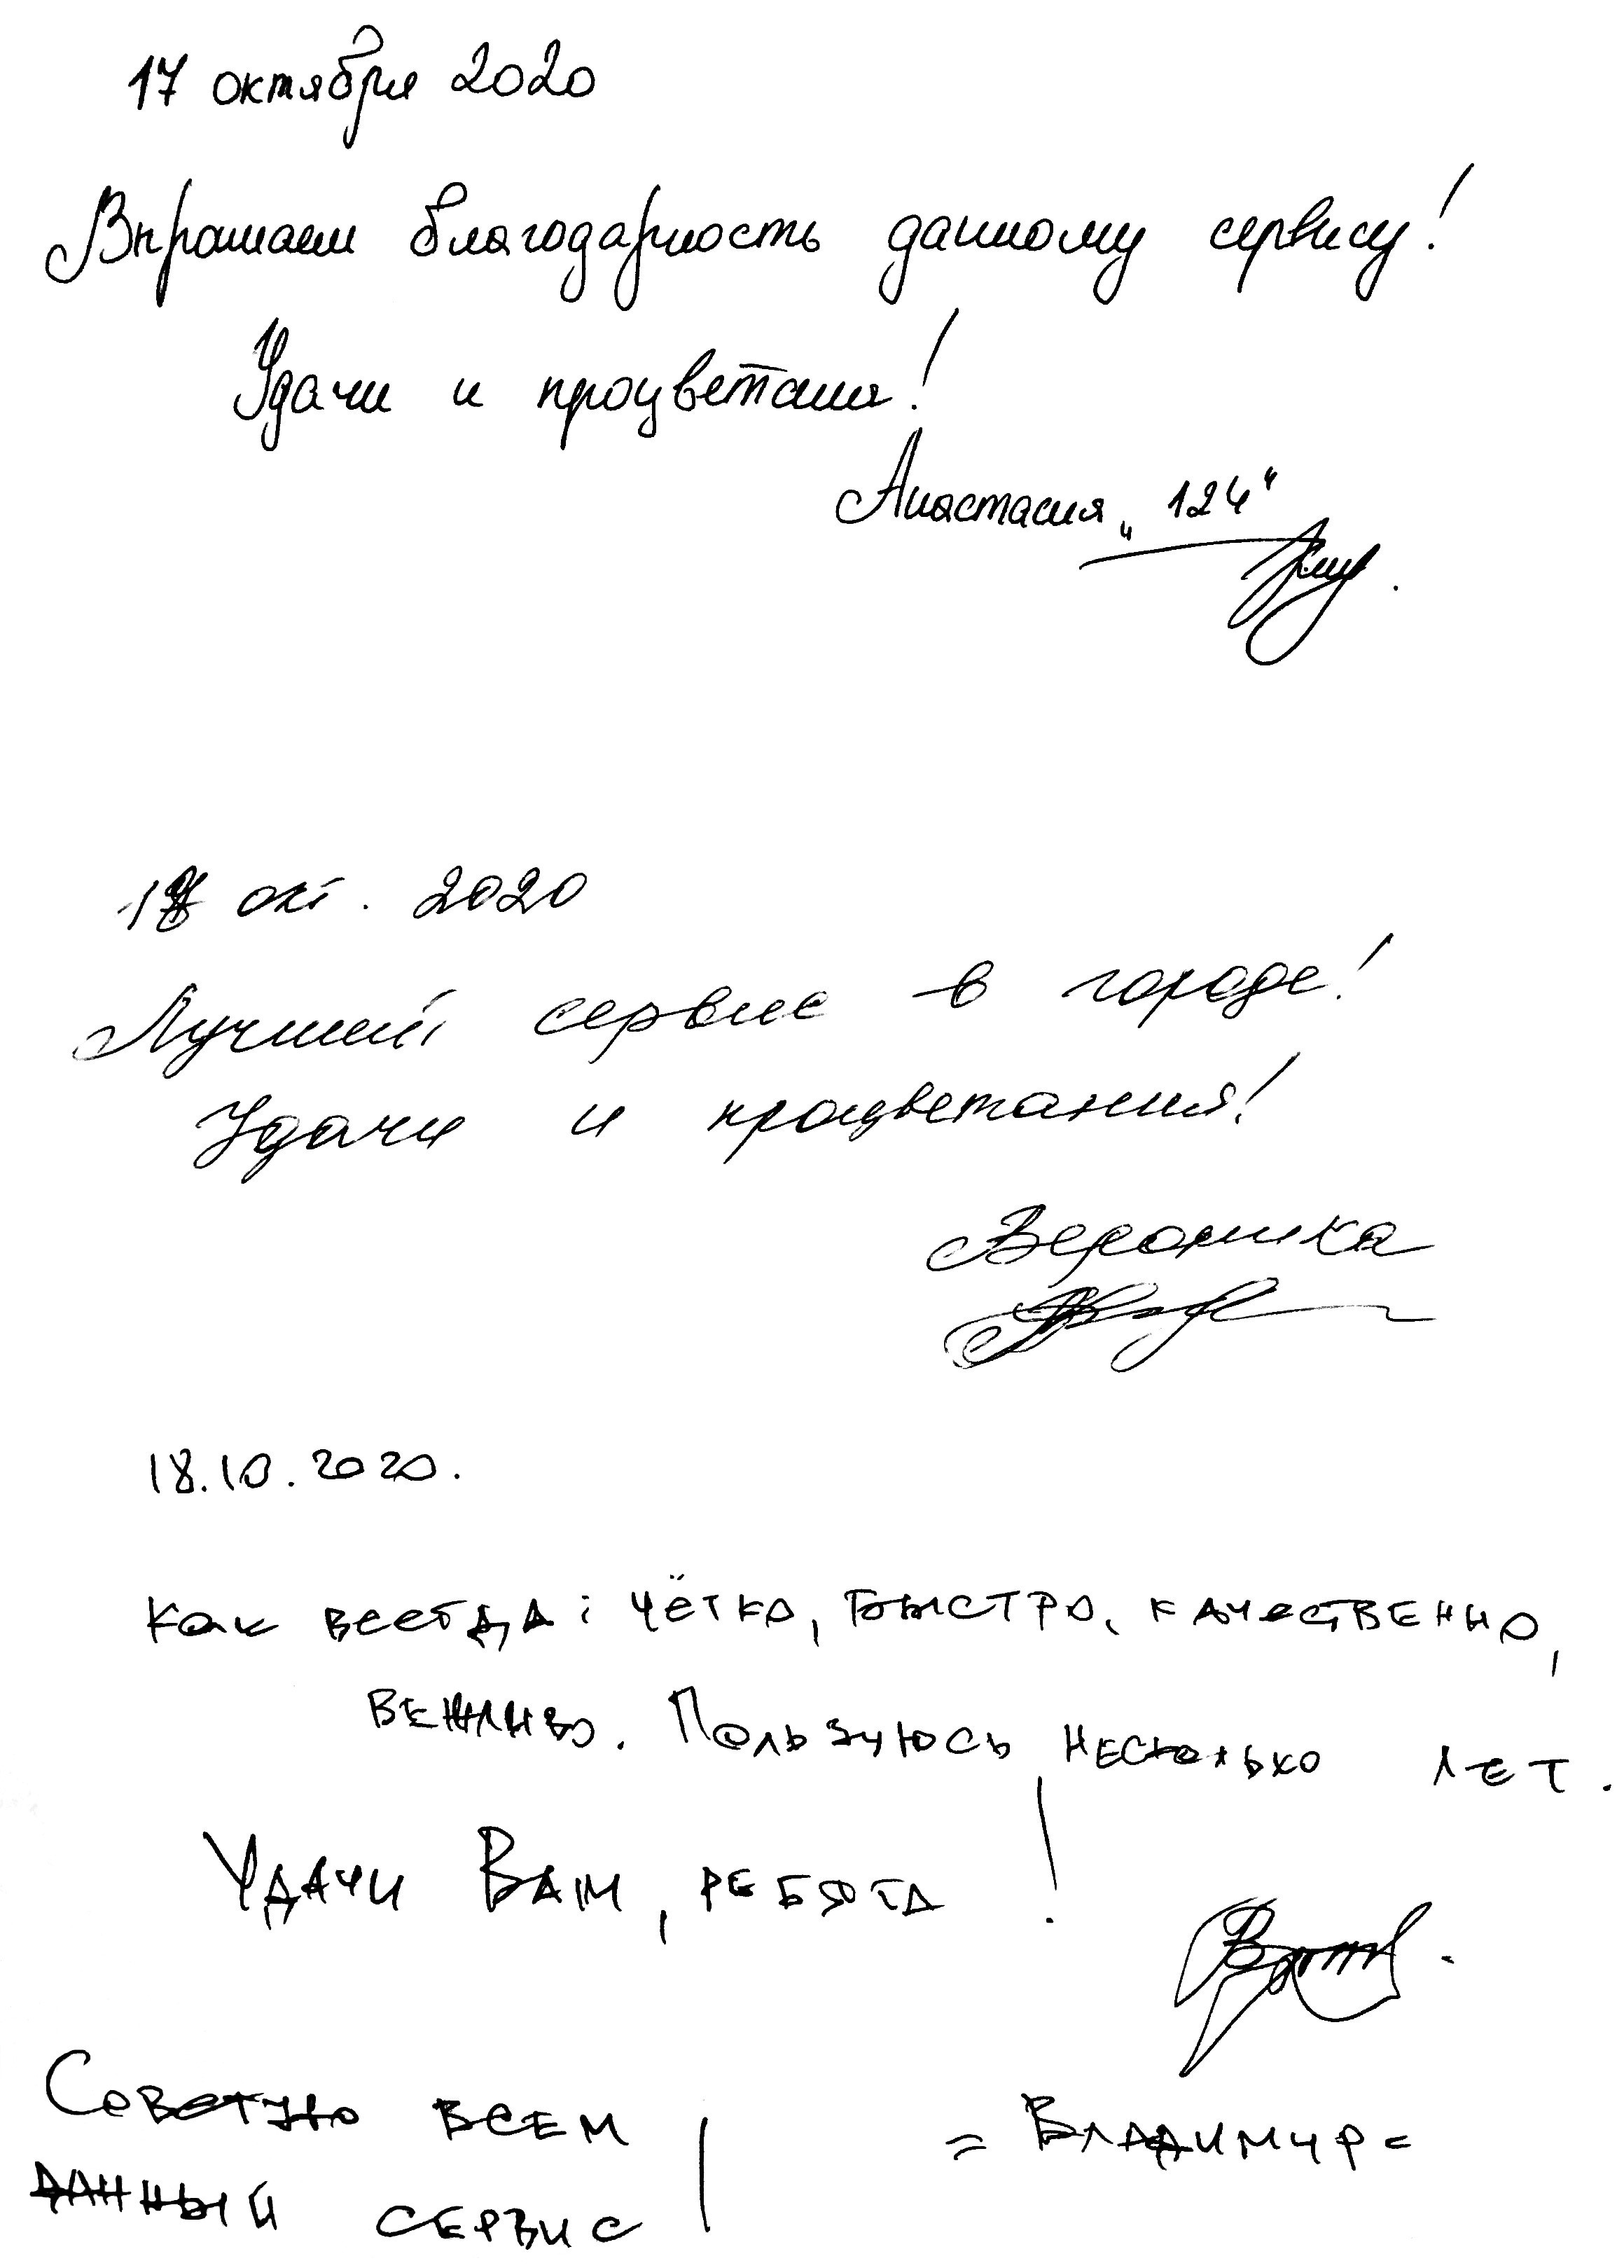 17 октября 2020
Выражаем благодарность данному сервису!
Удачи и процветания!
Анастасия „124“
18 окт. 2020
Лучший сервис в городе!
Удачи и процветания!
Вероника
18.10.2020.
Как всегда: чётко, быстро, качественно,
вежливо. Пользуюсь несколько лет.
Удачи Вам, ребята!
Советую всем
= Владимир =
данный сервис!